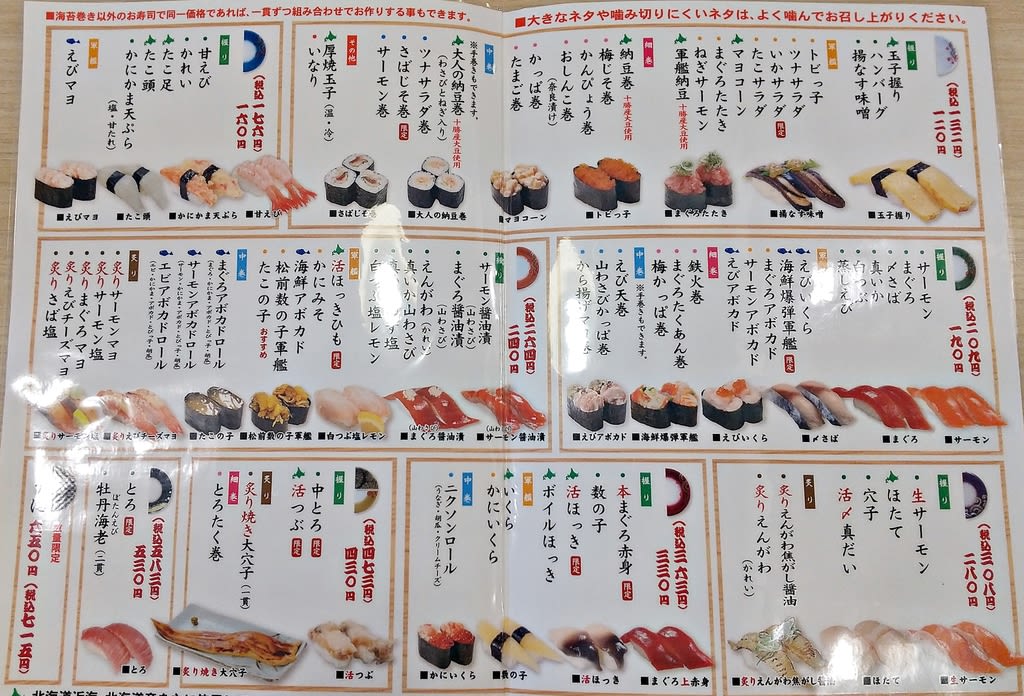 ■海苔巻き以外のお寿司で同一価格であれば、一貫ずつ組み合わせでお作りする事もできます。
■大きなネタや噛み切りにくいネタは、よく噛んでお召し上がりください。
一二〇円
(税込一三二円)
握り
玉子握り
ハンバーグ
揚げなす味噌
軍艦
トビっ子
ツナサラダ
いかサラダ 限定
たこサラダ
マヨコーン
まぐろたたき
ねぎサーモン
軍艦納豆 十勝産大豆使用
細巻
納豆巻 十勝産大豆使用
梅じそ巻
かんぴょう巻
おしんこ巻
(奈良漬け)
かっぱ巻
たまご巻
中巻
※手巻きもできます。
大人の納豆巻
(わさびとねぎ入り)
十勝産大豆使用
ツナサラダ巻
さばじそ巻 限定
サーモン巻
その他
厚焼玉子(温・冷)
いなり
■玉子握り
■揚なす味噌
■まぐろたたき
■トビっ子
■マヨコーン
■大人の納豆巻
■さばじそ巻
一六〇円
(税込一七六円)
握り
甘えび
かれい
たこ足
たこ頭
かにかま天ぷら
(塩・甘たれ)
軍艦
えびマヨ
■甘えび
■かにかま天ぷら
■たこ頭
■えびマヨ
一九〇円
(税込二〇九円)
握り
サーモン
まぐろ
〆さば
真いか
白つぶ
蒸しえび
軍艦
えびいくら
海鮮爆弾軍艦 限定
まぐろアボカド
サーモンアボカド
えびアボカド
細巻
鉄火巻
まぐろたくあん巻
梅かっぱ巻
中巻
※手巻きもできます。
えび天巻
山わさびかっぱ巻
から揚げマヨ巻
■サーモン
■まぐろ
■〆さば
■えびいくら
■海鮮爆弾軍艦
■えびアボカド
二四〇円
(税込二六四円)
握り
サーモン醤油漬
(山わさび)
まぐろ醤油漬
(山わさび)
えんがわ(かれい)
真いか山わさび
白つぶ塩レモン
軍艦
活ほっきひも 限定
かにみそ
海鮮アボカド
松前数の子軍艦
たこの子 おすすめ
中巻
まぐろアボカドロール
サーモンアボカドロール
エビアボカドロール
炙り
炙りサーモンマヨ
炙りサーモン塩
炙りまぐろマヨ
炙りえびチーズマヨ
炙りさば塩
(山わさび)
■サーモン醤油漬
(山わさび)
■まぐろ醤油漬
■白つぶ塩レモン
■松前数の子軍艦
■たこの子
■炙りえびチーズマヨ
■炙りサーモン塩
二八〇円
(税込三〇八円)
握り
生サーモン
ほたて
穴子
活〆真だい
炙り
炙りえんがわ焦がし醤油
(かれい)
■生サーモン
■ほたて
■炙りえんがわ焦がし醤油
三三〇円
(税込三六三円)
握り
本まぐろ赤身 限定
数の子
活ほっき 限定
ボイルほっき
軍艦
いくら
かにいくら
中巻
ニクソンロール
(うなぎ・胡瓜・クリームチーズ)
■まぐろ上赤身
■活ほっき
■数の子
■かにいくら
四三〇円
(税込四七三円)
握り
中とろ 限定
活つぶ 限定
炙り
炙り焼き大穴子(一貫)
細巻
とろたく巻
■活つぶ
■炙り焼き大穴子
五三〇円
(税込五八三円)
とろ 限定
ぼたんえび
牡丹海老(二貫)
■とろ
数量限定
六五〇円(税込七一五円)